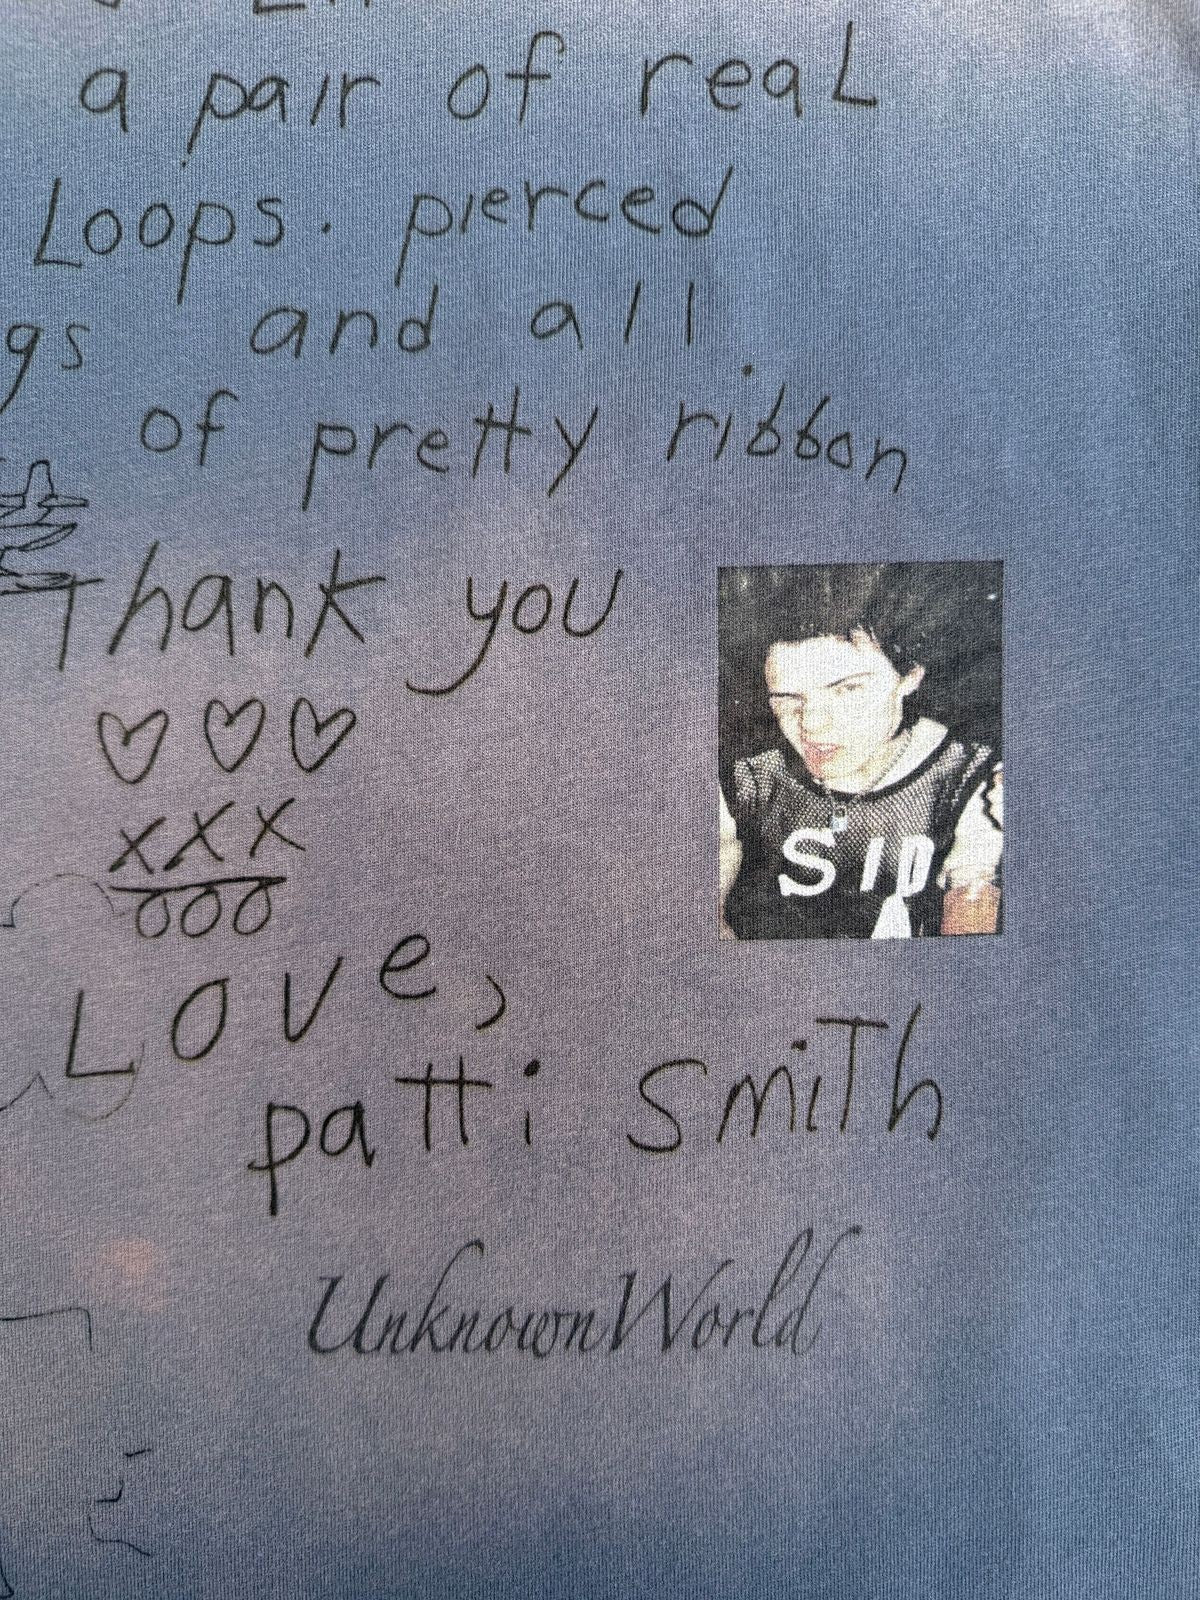 a pair of real
Loops. pierced
gs and all
of pretty ribbon
Thank you
xxx
ooo
Love,
SID
patti smith
UnknownWorld